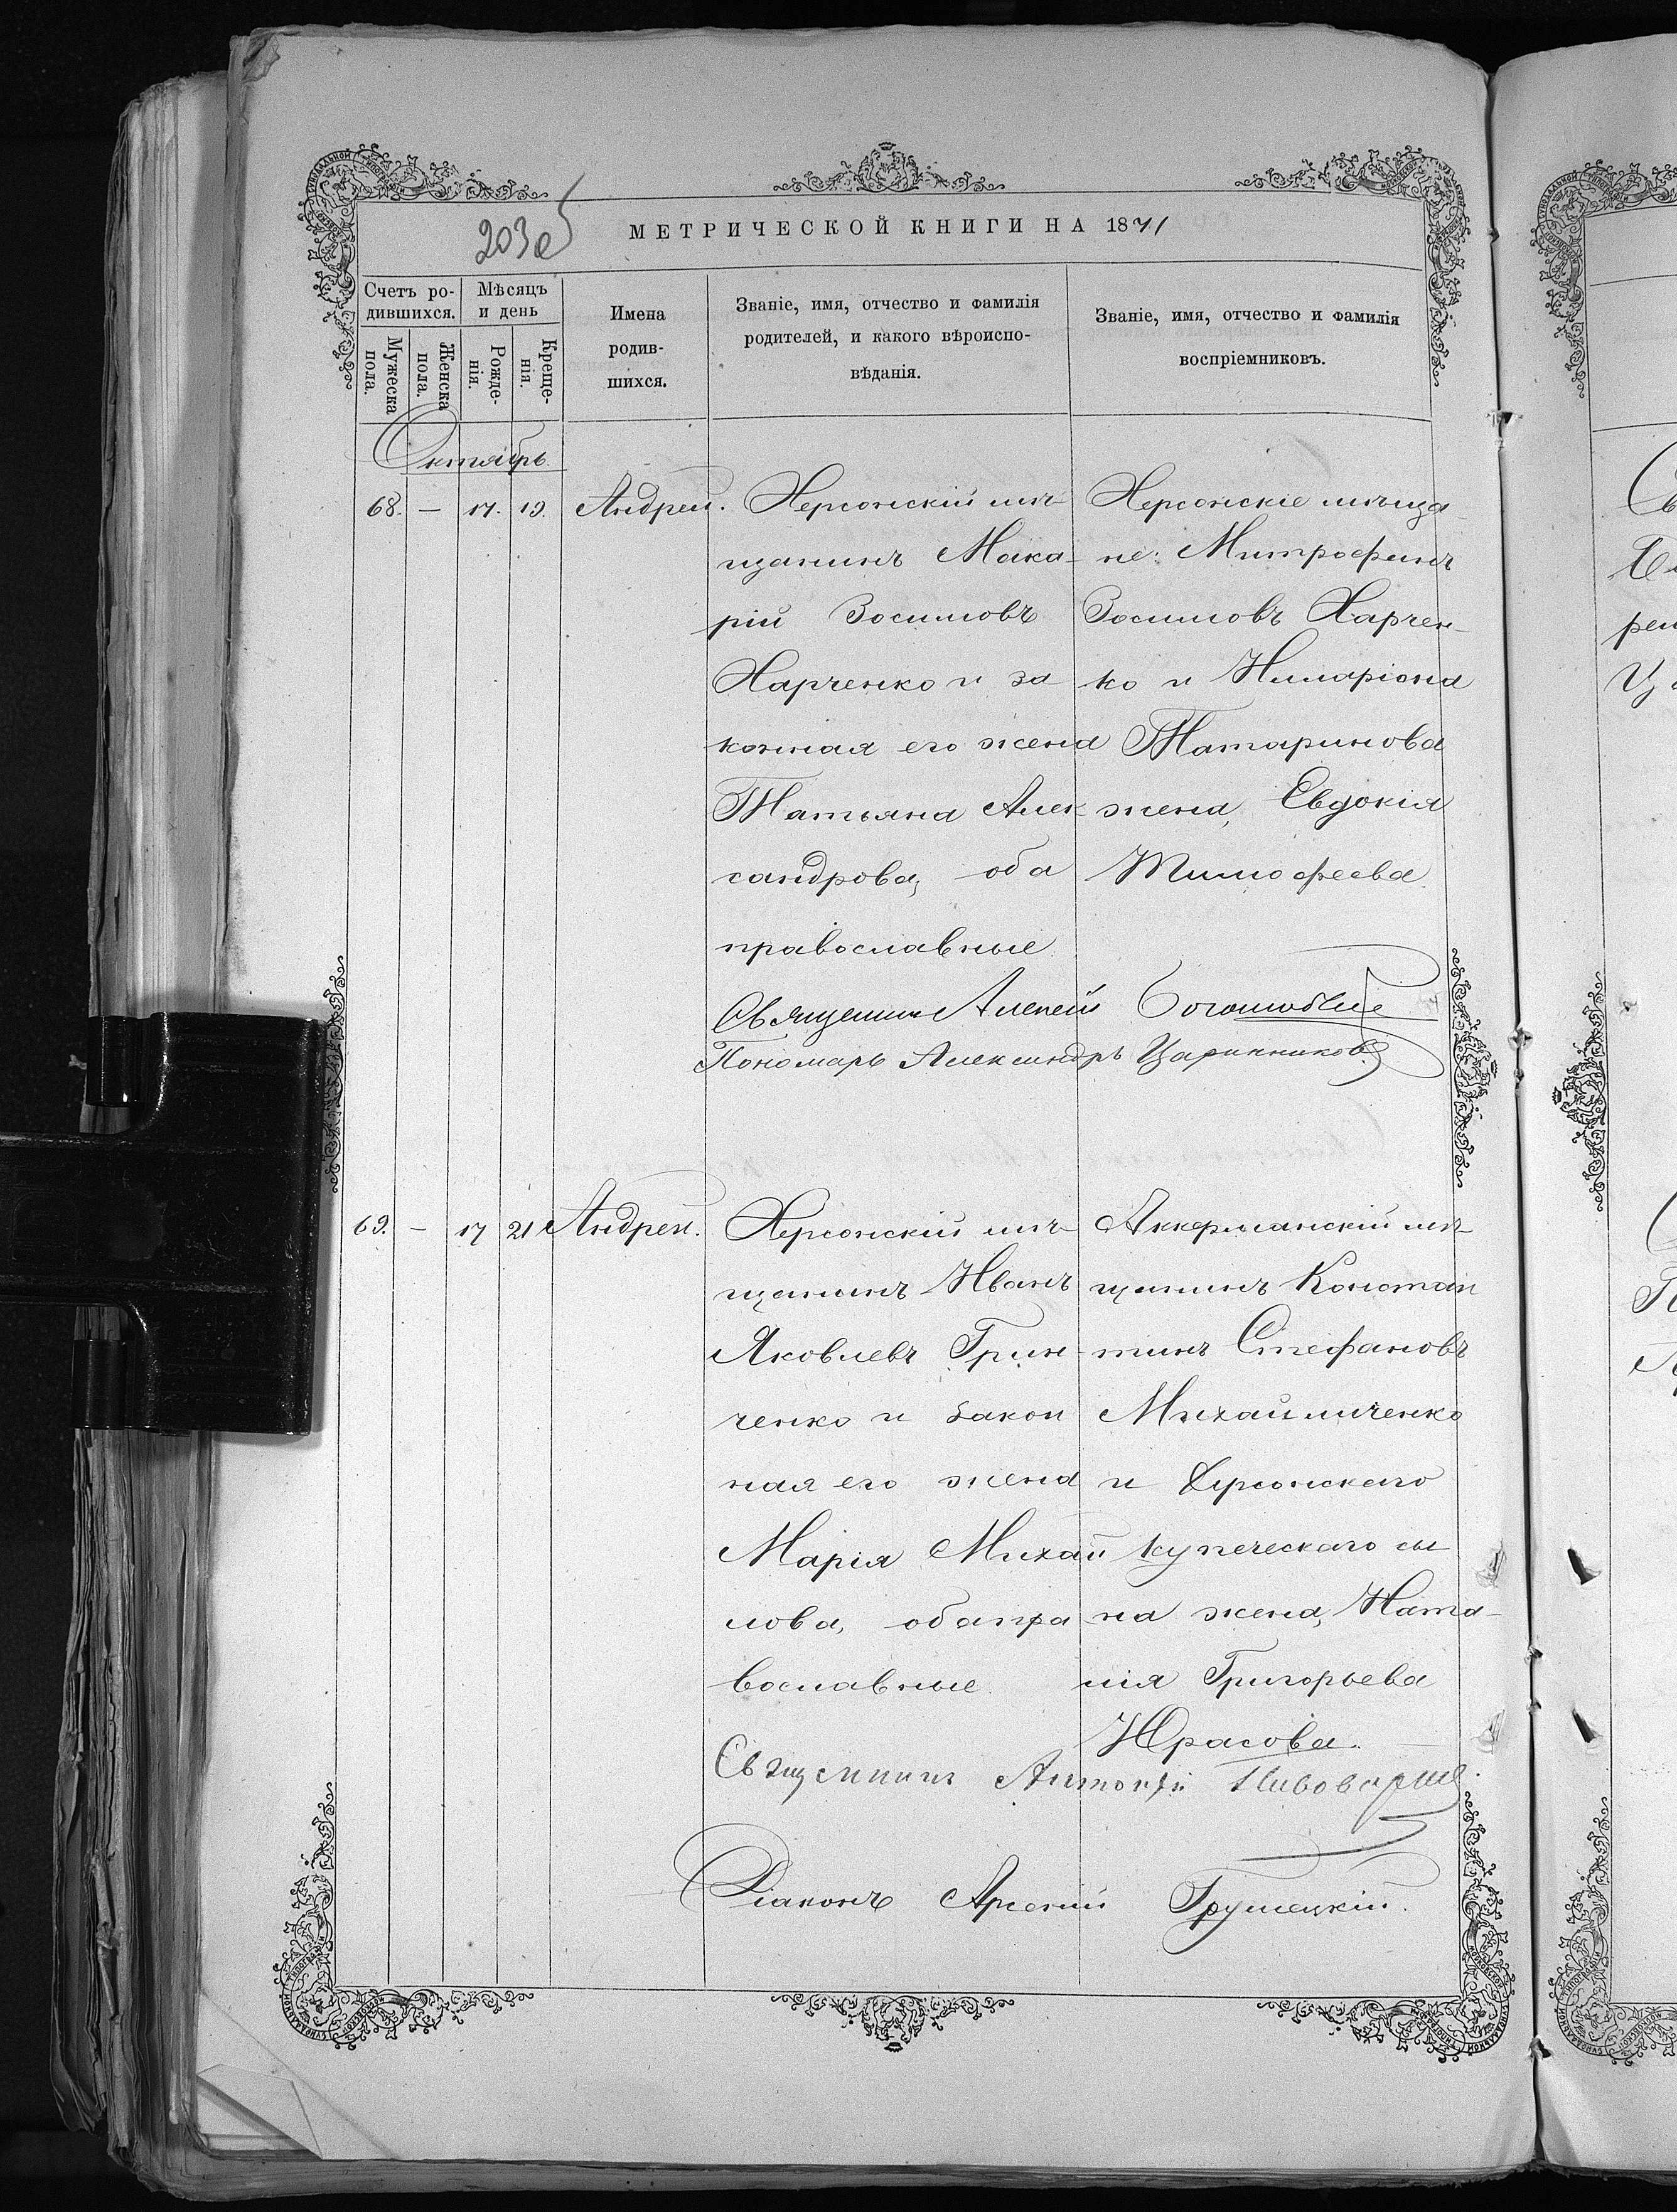 203 об
МЕТРИЧЕСКОЙ КНИГИ НА 1871
Счетъ ро-
дившихся.
Мѣсяцъ
и день
Мужеска
пола.
Женска
пола.
Рожде-
нія.
Креще-
нія.
Имена
родив-
шихся.
Званіе, имя, отчество и фамилія
родителей, и какого вѣроиспо-
вѣданія.
Званіе, имя, отчество и фамилія
воспріемниковъ.
Октябрь
68. — 17. 19. Андрей.
Херсонскій мѣ-
щанинъ Мака-
рій Зосимовъ
Харченко и за
конная его жена
Татьяна Алек
сандрова, оба
православные.
Херсонскіе мѣща-
не: Митрофанъ
Зосимовъ Харчен-
ко и Иларіона
Татаринова
жена, Евдокія
Тимофеева.
Священник Алексій
Пономарь Александръ Царинниковъ
69. — 17 21 Андрей.
Херсонскій мѣ-
щанинъ Иванъ
Яковлевъ Грин-
ченко и закон
ная его жена
Марія Михай
лова, обапра
вославные.
Аккерманскій мѣ-
щанинъ Констан
тинъ Стефановъ
Михайличенко
и Херсонскаго
купеческаго сы
на жена, Ната-
лія Григорьева
Юрасова.
Священникъ Антоній Пивоваровъ
Діаконъ Арсеній Грушецкій.